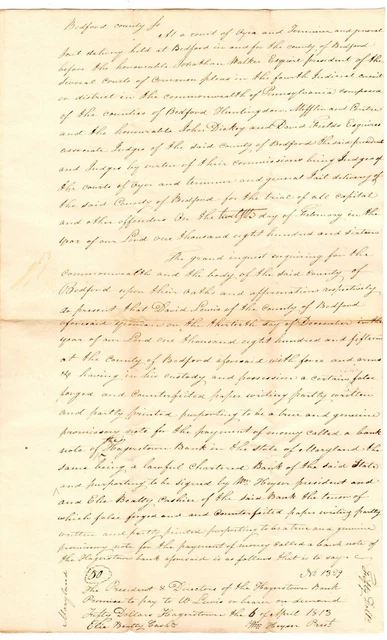 Bedford county Ss
At a court of Oyer and Terminer and general
jail delivery held at Bedford in and for the county of Bedford
before the honourable Jonathan Walker Esquire president of the
several Courts of Common pleas in the fourth Judicial circuit
or district in the commonwealth of Pennsylvania composed
of the counties of Bedford Huntingdon Mifflin and Centre
and the honourable John Dickey and David Fields Esquires
associate Judges of the said county of Bedford the said president
and Judges by virtue of their commissions being Judges of
the courts of Oyer and terminer and general Jail delivery of
the said County of Bedford for the trial of all capital
and other offenders On the twelfth day of February in the
year of our Lord one thousand eight hundred and sixteen
The grand inquest enquiring for the
commonwealth and the body of the said county of
Bedford upon their oaths and affirmations respectively
do present that David Lewis of the county of Bedford
aforesaid yeoman on the thirtieth day of December in the
year of our Lord one thousand eight hundred and fifteen
at the county of Bedford aforesaid with force and arms
&c having in his custody and possession a certain false
forged and counterfeited paper writing partly written
and partly printed purporting to be a true and genuine
promissory note for the payment of money called a bank
note of the Hagerstown Bank in the State of Maryland the
same being a lawful Chartered Bank of the said State
and purporting to be signed by Wm Heyser president and
and Elie Beatty Cashier of the said Bank the tenor of
which false forged and and Counterfeited paper writing partly
written and partly printed purporting to be a true and genuine
promissory note for the payment of money called a bank note of
the Hagerstown bank aforesaid is as follows that is to say
50
No 1329
The President & Directors of the Hagerstown Bank
Promise to pay to W Lewis or bearer on demand
Fifty Dollars Hagerstown the 6 of April 1813
Elie Beatty Cash
Wm Heyser Prest
Maryland
Fifty Dolls